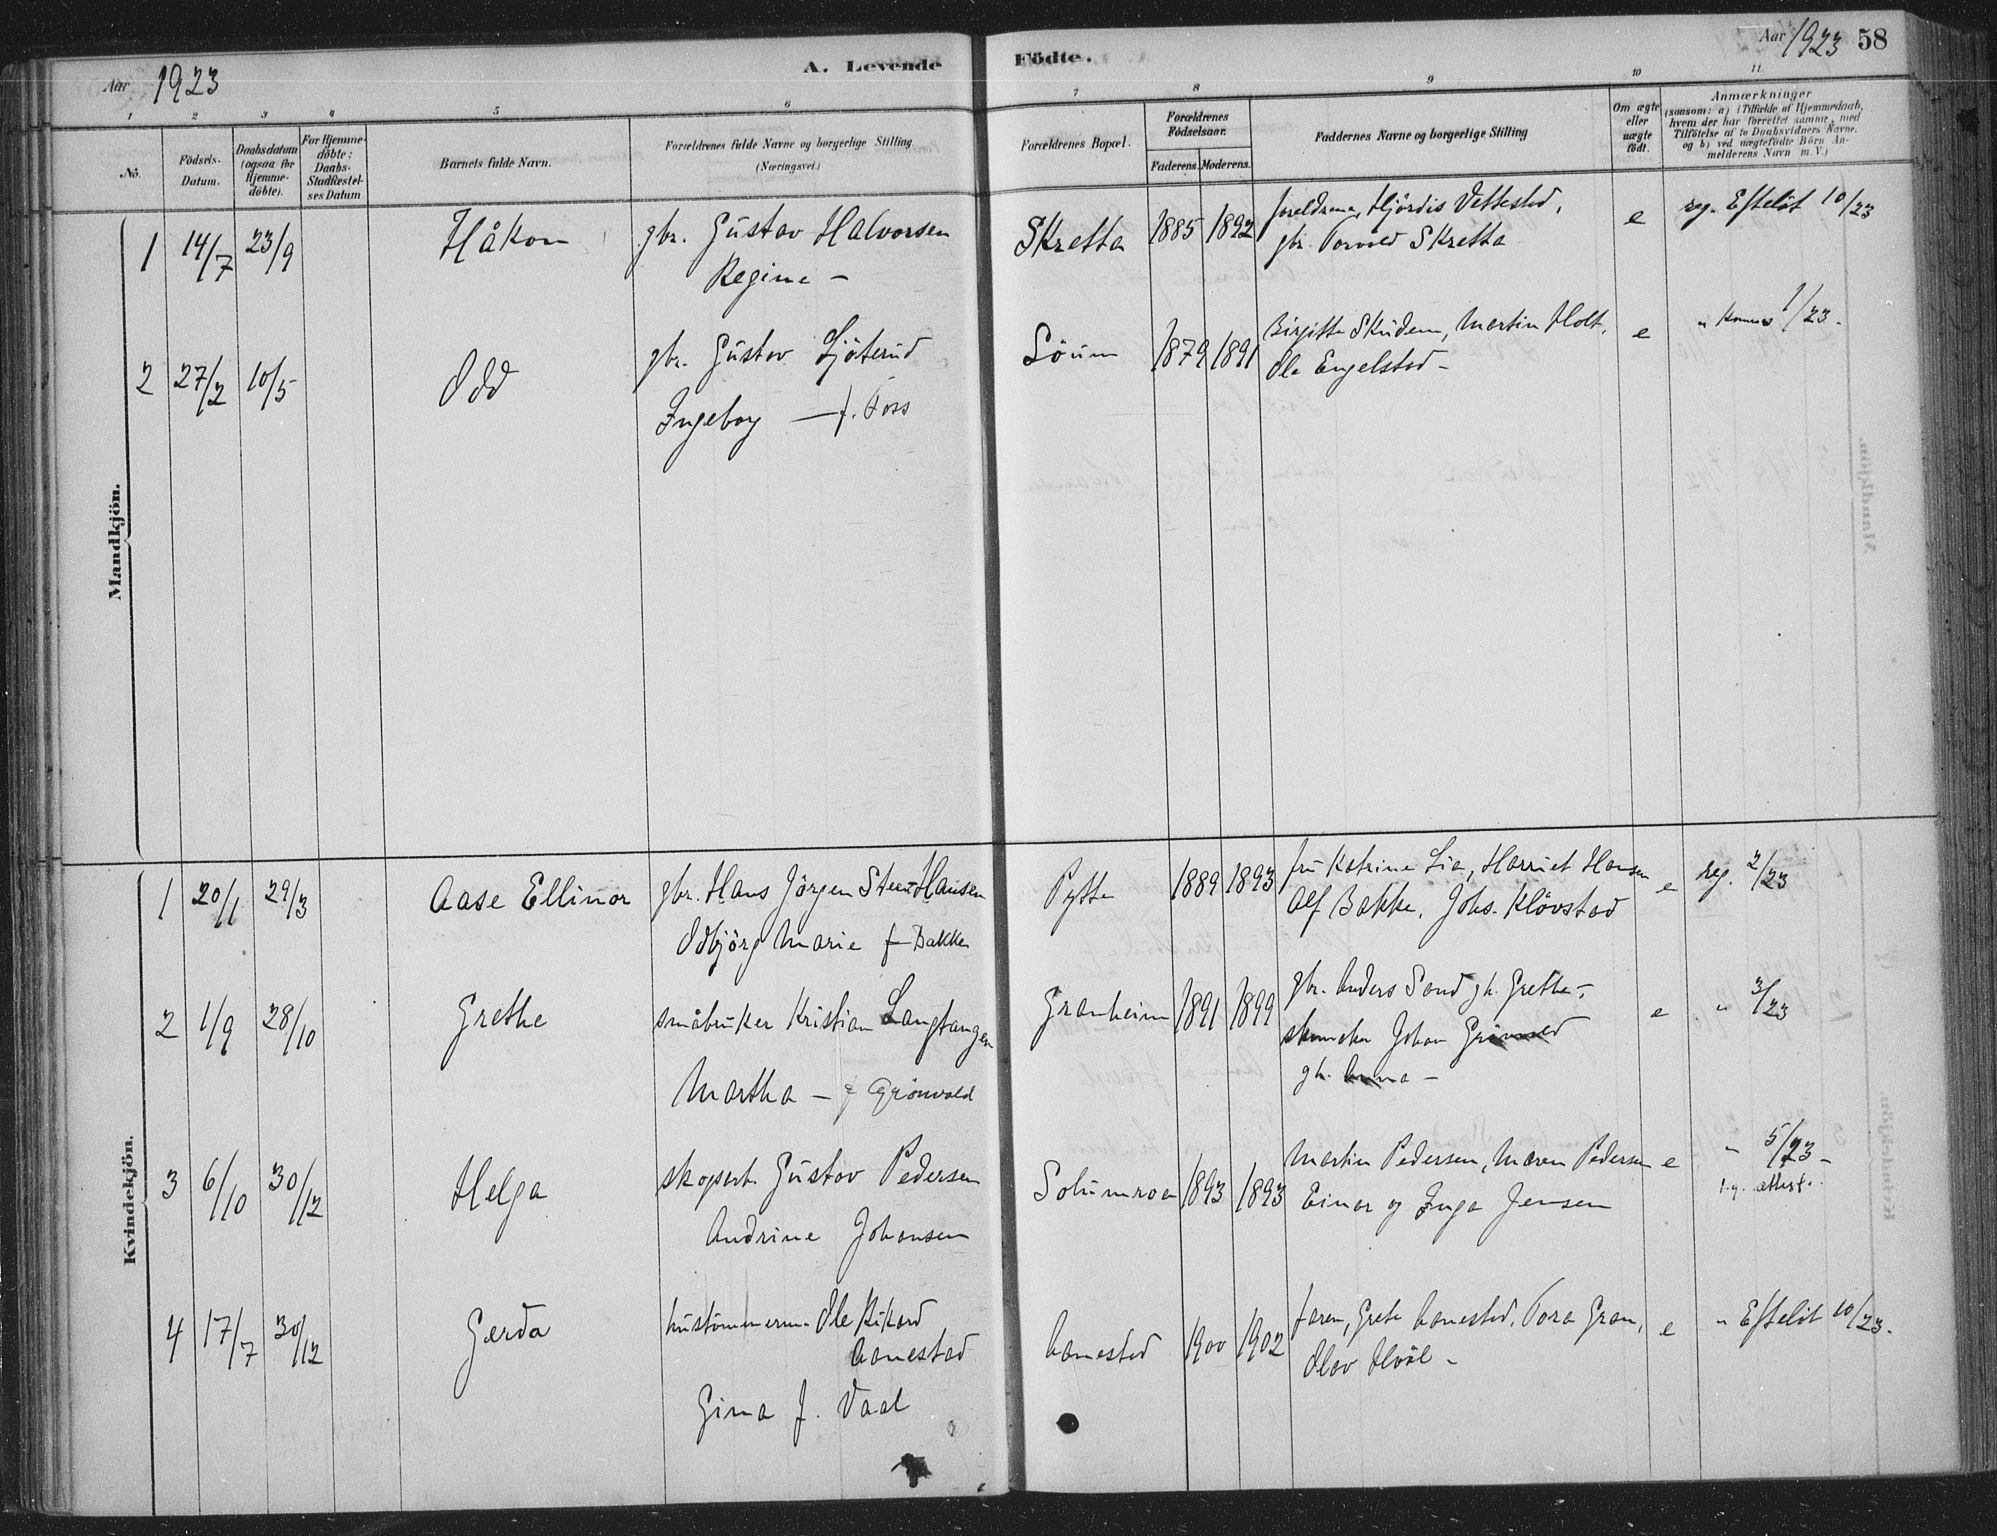 Aar 1923
A. Levende Födte.
Aar 1923 58
1 2 3 4 5 6 7 8 9 10 11
No.
Födsels-Datum.
Daabsdatum (ogsaa for Hjemmedöbte).
For Hjemmedöbte: Daabs-Stadfæstelses Datum
Barnets fulde Navn.
Forældrenes fulde Navne og borgerlige Stilling (Næringsvei.)
Forældrenes Bopæl.
Forældrenes Födselsaar.
Faderens. Moderens.
Faddernes Navne og borgerlige Stilling
Om ægte eller uægte födt.
Anmærkninger
(saasom: a) i Tilfælde af Hjemmedaab, hvem der har forrettet samme, med Tilföielse af to Daabsvidners Navne. og b) ved uægtefödte Börn Anmelderens Navn m. V.)
Mandkjön.
1 14/7 23/9 Håkon gbr. Gustav Halvorsen Skretta 1885 1892 foreldrene, Hjördis Vettestad, e reg. Efteløt 10/23
Regine - gbr. Torvald Skretta
2 27/2 10/5 Odd gbr. Gustav Ljöterud Söum 1879 1891 Birgitte Skuden, Martin Holt, e " 1/23.
Ingeborg — f. Foss Ole Engelstad -
Kvindekjön.
1 20/1 29/3 Aase Ellinor gbr. Hans Jörgen Steen-Hansen Pytte 1889 1893 fru Katrine Lia, Harriet Hansen e reg. 2/23
Odbjörg Marie f Bakke Alf Bakke, Johs. Klövstad
2 1/9 28/10 Grethe småbruker Kristian Langtangen Granheim 1891 1899 gbr. Anders Sand gh. Grethe - e " 3/23
Martha - f Grönvold Johan Grönvold
gh. Anna -
3 6/10 30/12 Helga Gustav Pedersen Solumroa 1893 1893 Martin Pedersen, Maren Pedersen e " 5/23 -
Andrine Johansen Einar og Inga Jensen attest.
4 17/7 30/12 Gerda hustömmerm. Ole Rikard Aanestad 1900 1902 faren, Grete Aanestad, Tora Gran, e " Efteløt 10/23.
Aanestad Olav Hvål -
Gina f. Vaal